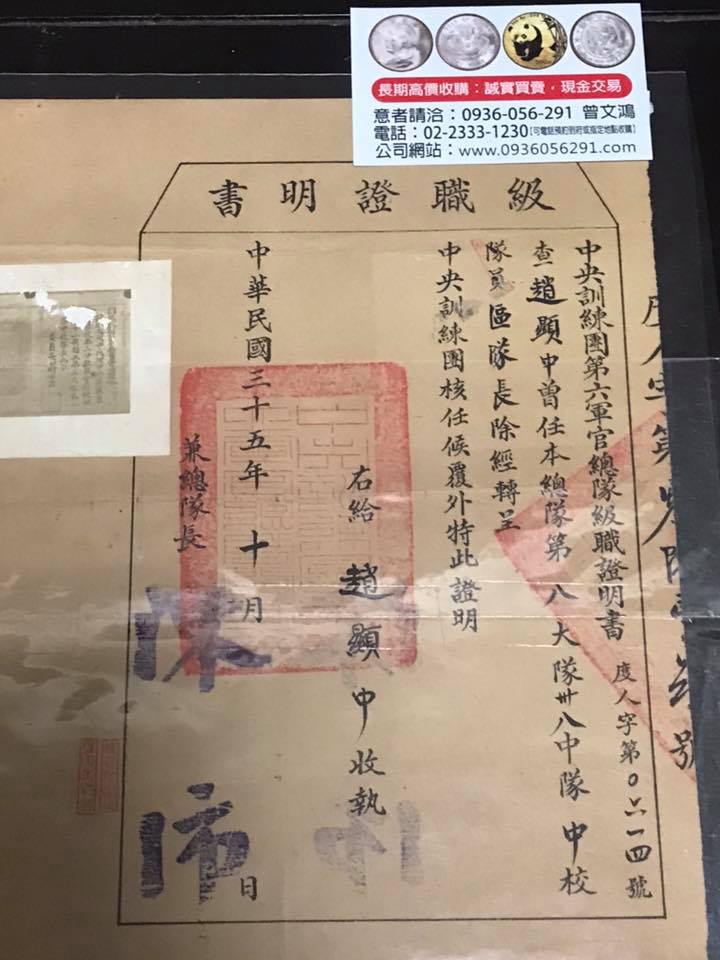 長期高價收購：誠實買賣，現金交易
意者請洽：0936-056-291 曾文鴻
電話：02-2333-1230【可電話預約到府或指定地點收購】
公司網站：www.0936056291.com
級職證明書
中央訓練團第六軍官總隊級職證明書 度人字第0六一四號
查趙顯中曾任本總隊第八大隊卅八中隊中校
隊員區隊長除經轉呈
中央訓練團核任候覆外特此證明
右給 趙顯中收執
中華民國三十五年十月 日
兼總隊長
陳沛